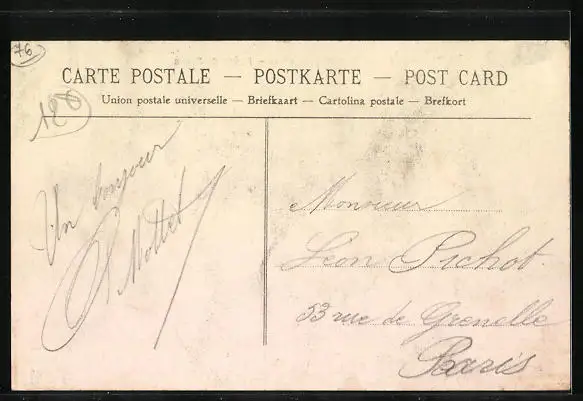 76
CARTE POSTALE — POSTKARTE — POST CARD
Union postale universelle — Briefkaart — Cartolina postale — Brefkort
120
Un bonjour
Mottet
Monsieur
Léon Pichot.
53 rue de Grenelle
Paris